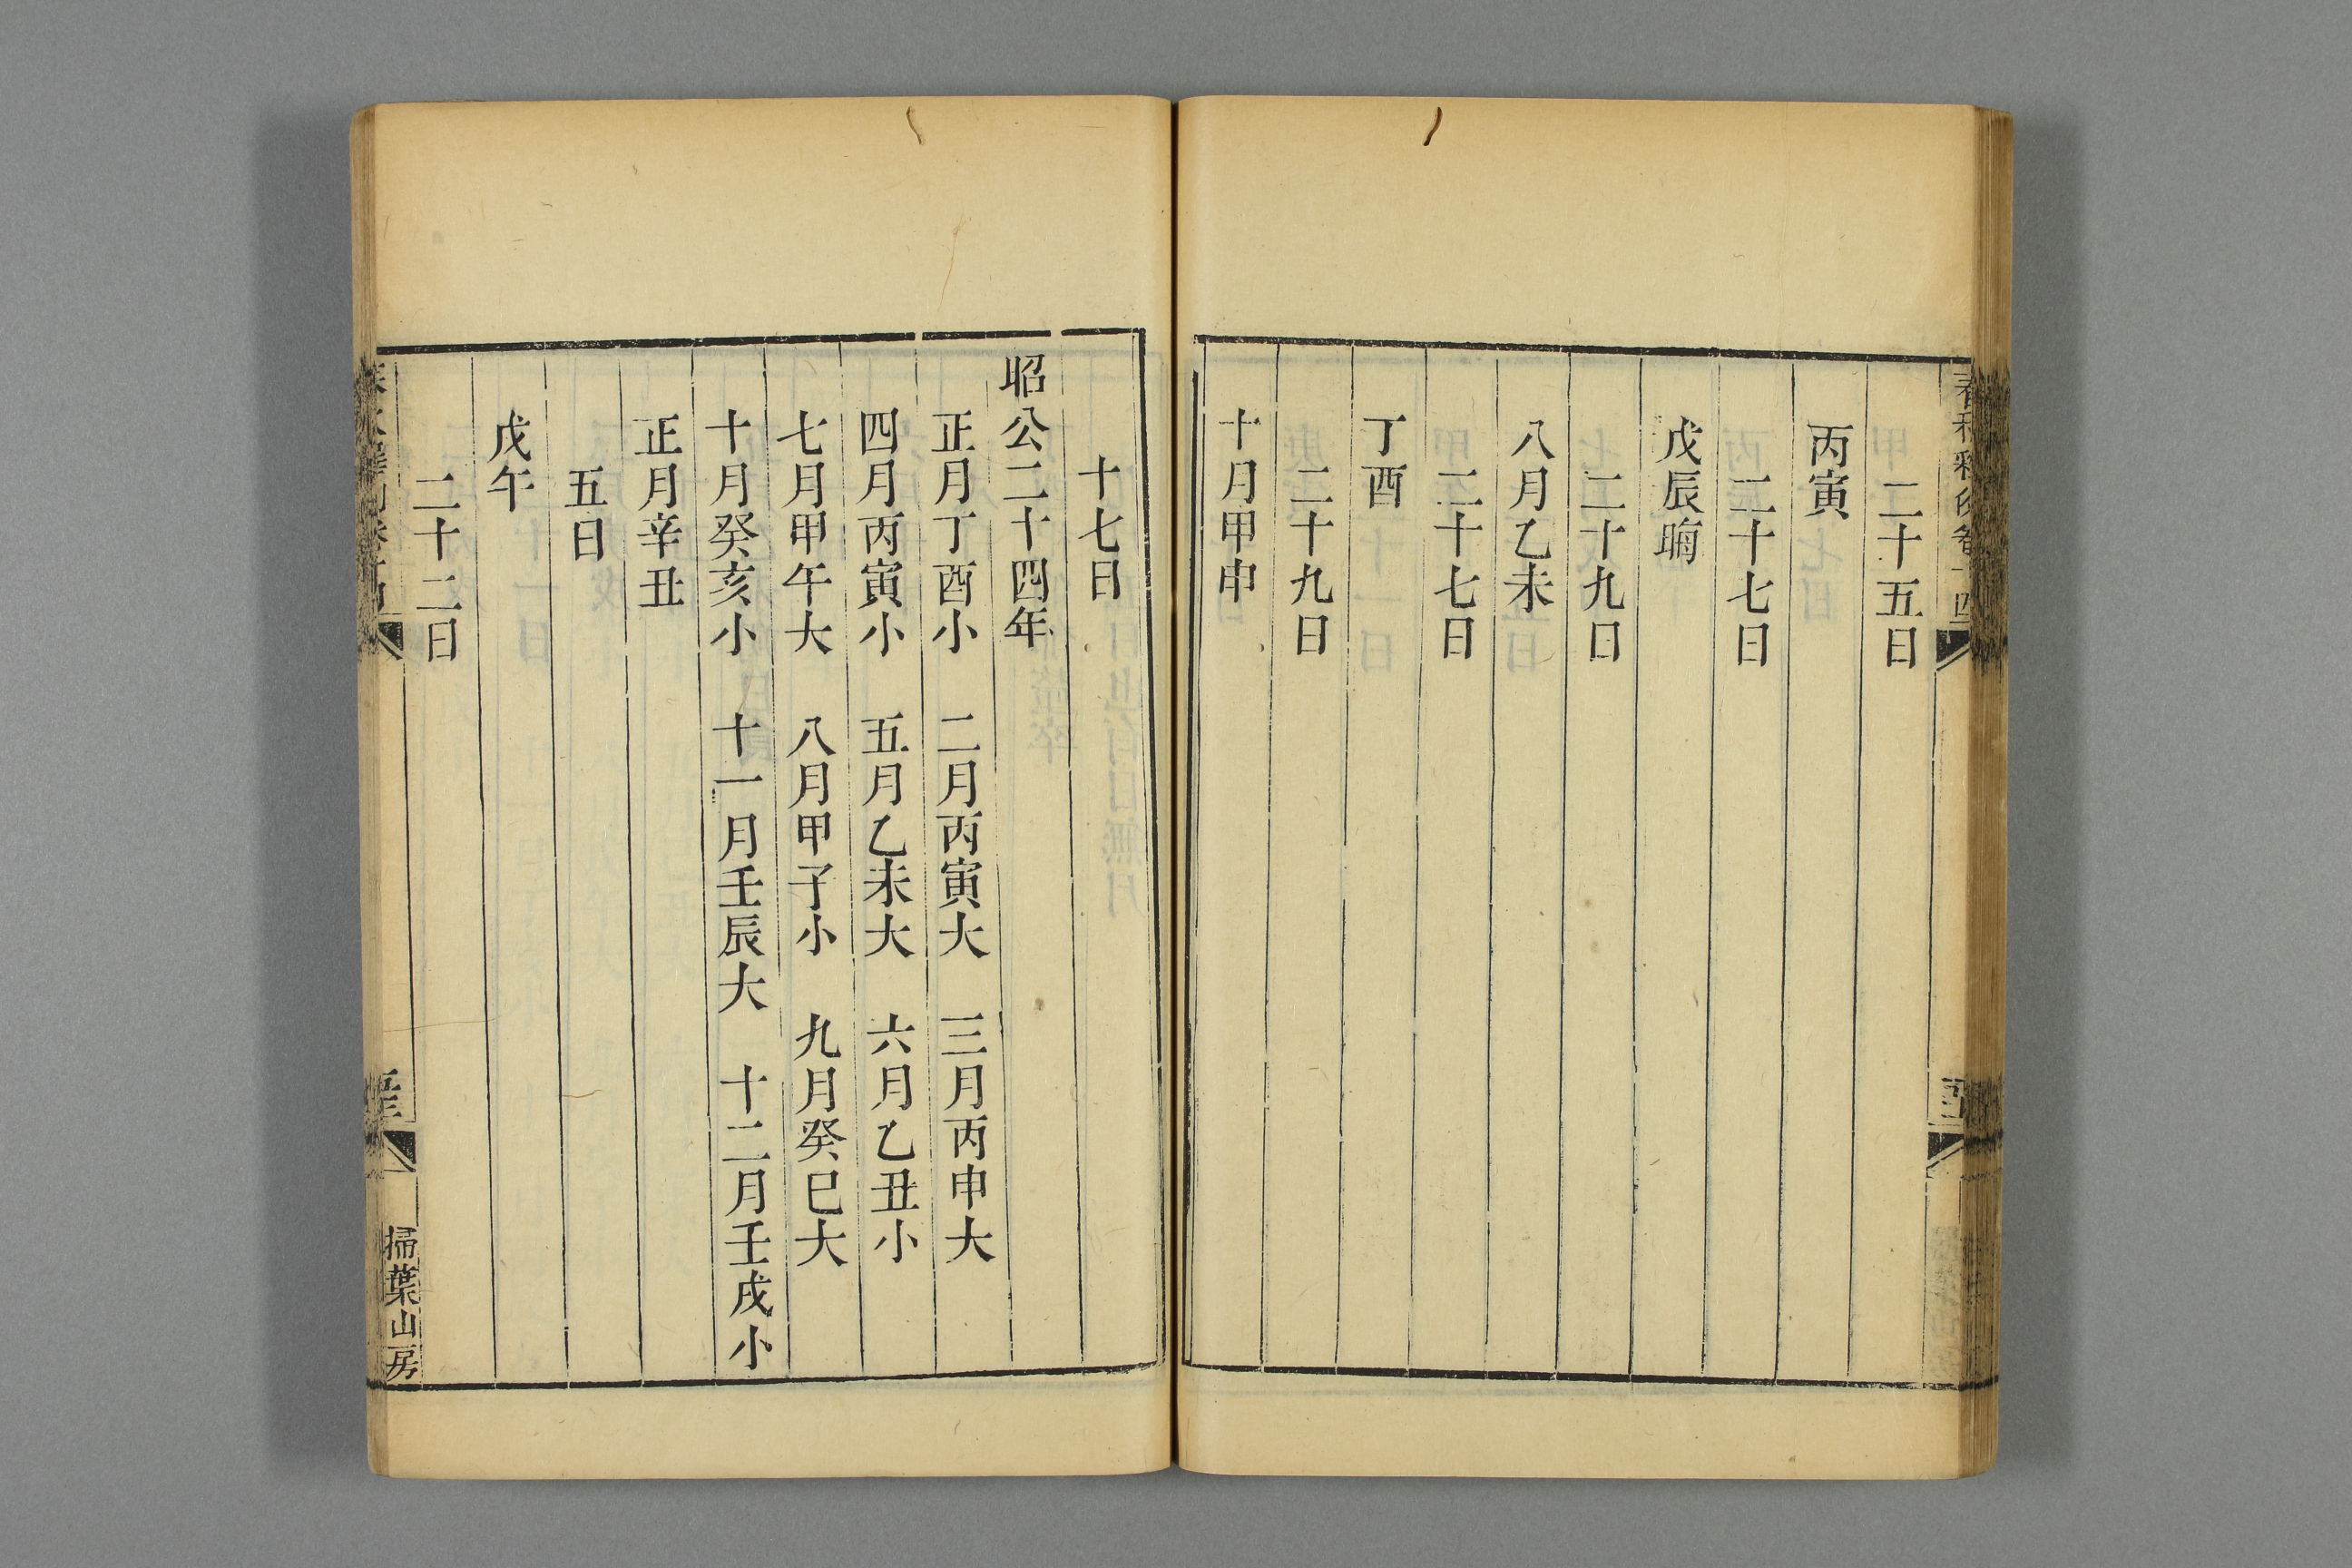 春秋釋例卷十四
二十五日
丙寅
二十七日
戊辰晦
二十九日
八月乙未
二十七日
丁酉
二十九日
十月甲申
十七日
昭公二十四年
正月丁酉小　二月丙寅大　三月丙申大
四月丙寅小　五月乙未大　六月乙丑小
七月甲午大　八月甲子小　九月癸巳大
十月癸亥小　十一月壬辰大　十二月壬戌小
正月辛丑
五日
戊午
二十二日
掃葉山房